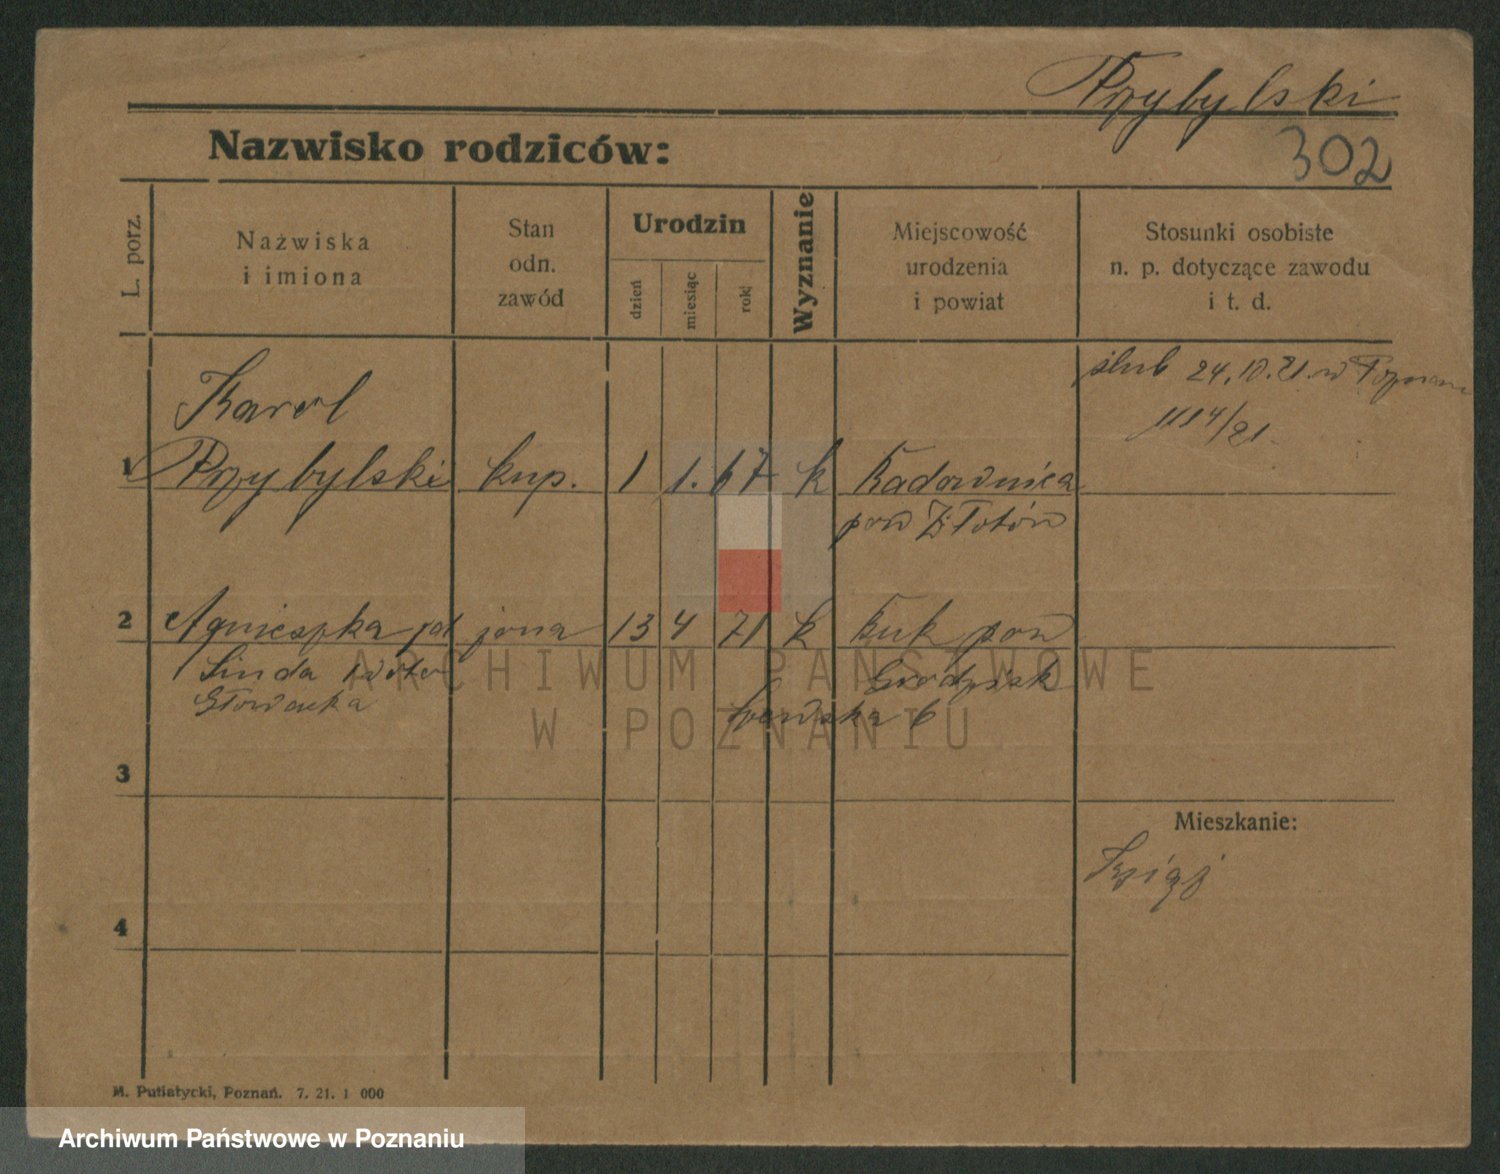 Przybylski
302
Nazwisko rodziców:
L. porz.
Nazwiska
i imiona
Stan
odn.
zawód
Urodzin
dzień
miesiąc
rok
Wyznanie
Miejscowość
urodzenia
i powiat
Stosunki osobiste
n. p. dotyczące zawodu
i t. d.
ślub 24.10.21. w Poznan
1114/21
Karol
1 Przybylski kup. 1 1. 67 k Radownica
pow Złotów
2 Agnieszka żona 13 4 71 k Kuk pow
Linda
Głowacka
Grodzisk
6
3
Mieszkanie:
Książ
4
M. Putiatycki, Poznań. 7. 21. 1 000
ARCHIWUM PAŃSTWOWE
W POZNANIU
Archiwum Państwowe w Poznaniu